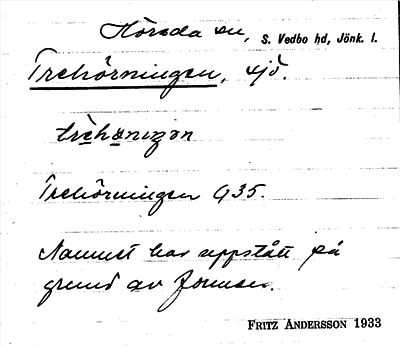 Hörsda sn, S. Vedbo hd, Jönk. l.
Trehörningen, sjö.
trèhœ̱niŋən
Trehörningen G35.
Namnet har uppstått på
grund av formen.
FRITZ ANDERSSON 1933